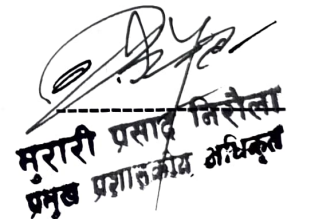 मुरारी प्रसाद निरौला
प्रमुख प्रशासकीय अधिकृत